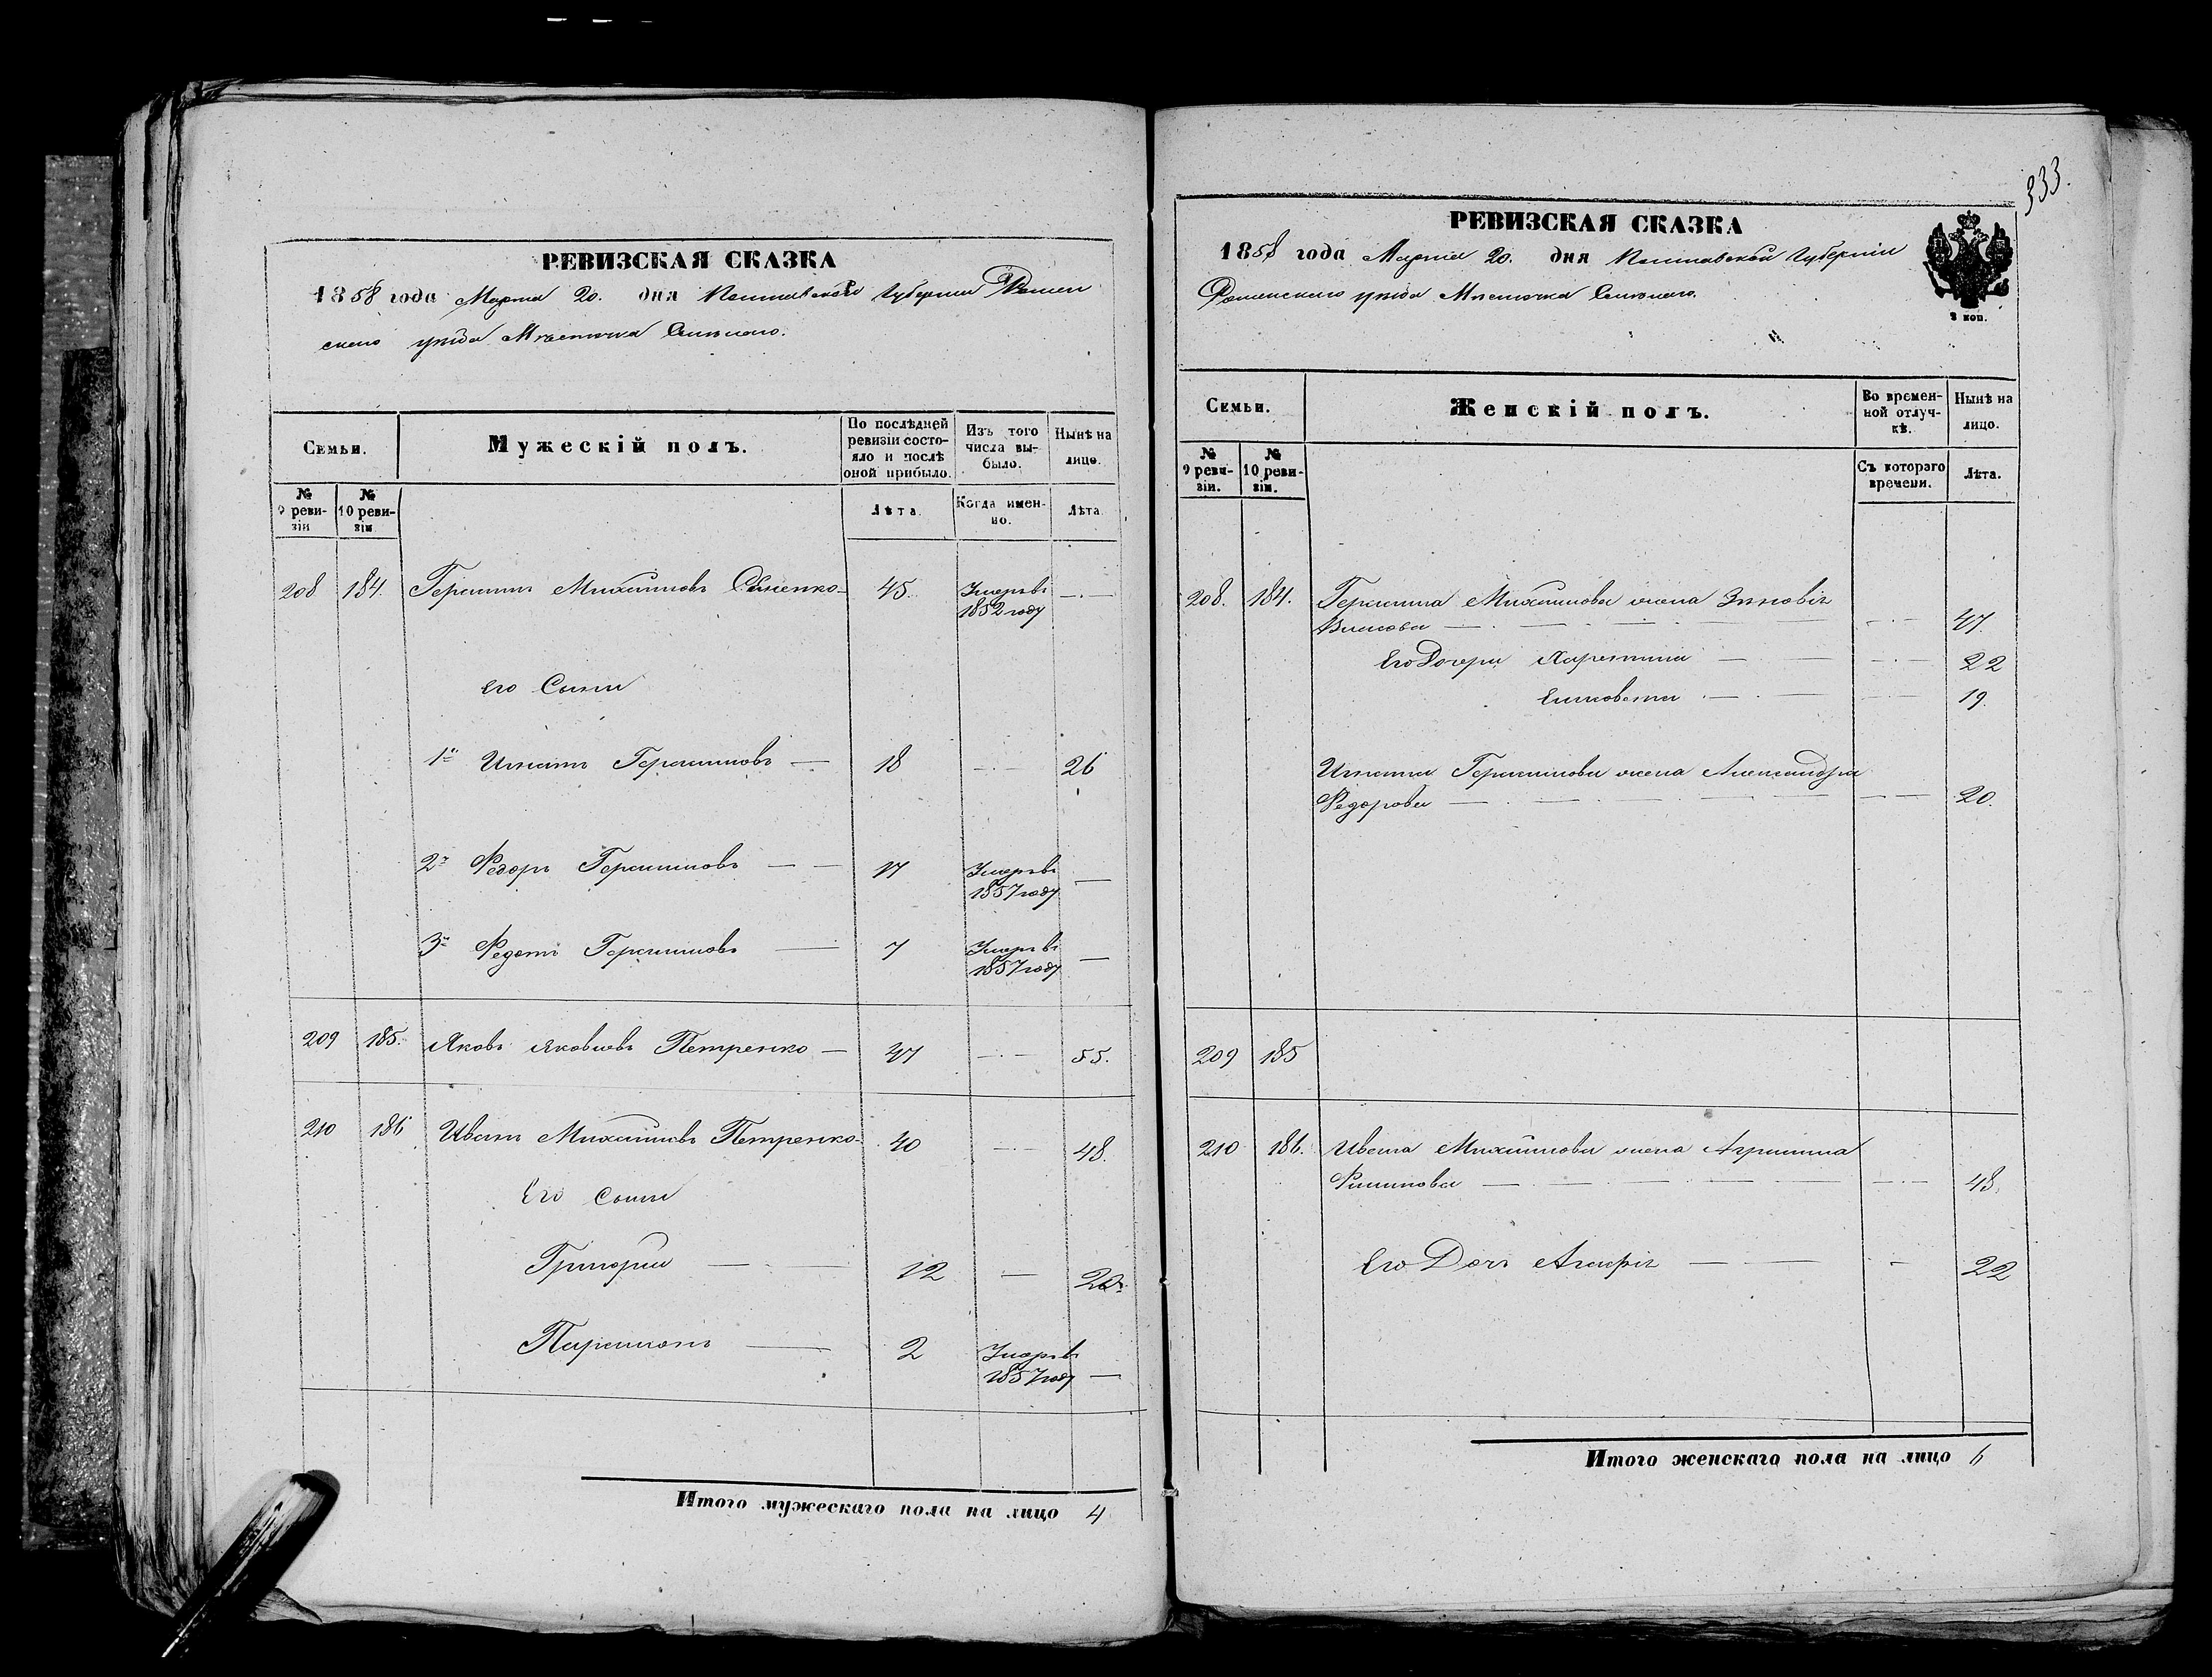 РЕВИЗСКАЯ СКАЗКА
1858 года Марта 20. дня Полтавской Губернии Ромен
скаго уѣзда Мѣстечка Смѣлаго.
Семьи.
Мужескій полъ.
По послѣдней ревизіи состояло и послѣ оной прибыло.
Изъ того числа выбыло.
Нынѣ на лицо.
№ 9 ревизіи
№ 10 ревизіи
Лѣта.
Когда именно.
Лѣта.
208 184. Герасимъ Михайловъ 45. Умеръ въ — · —
1852 году
Его Сыны
1й Игнатъ Герасимовъ — 18 — · — 26
2й Федоръ Герасимовъ — — 17 Умеръ въ —
1857 году
3й Федотъ Герасимовъ — 7 Умеръ въ —
1857 году
209 185. Яковъ Яковлевъ Петренко — 47 — · — 55.
210 186 Иванъ Михайловъ Петренко 40 — · — 48.
Его Сыны
Григорій — — 12 — 20.
Парамонъ — 2 Умеръ въ
1857 году —
Итого мужескаго пола на лицо 4
333.
РЕВИЗСКАЯ СКАЗКА
1858 года Марта 20. дня Полтавской Губерніи
Роменскаго уѣзда Мѣстечка Смѣлаго.
3 коп.
Семьи.
Женскій полъ.
Во временной отлучкѣ.
Нынѣ на лицо.
№ 9 ревизіи.
№ 10 ревизіи.
Съ котораго времени.
Лѣта.
208. 184. Герасима Михайлова жена Зиновія
— · — 47.
Его Дочери Харетина — — · — 22
Елисавета — — 19.
Игната Герасимова жена Александра
Федорова — — 20.
209 185
210 186. Ивана Михайлова жена Агрипина
Филипова — — · — 48.
Его Дочь Агафія — — - 22
Итого женскаго пола на лицо 6